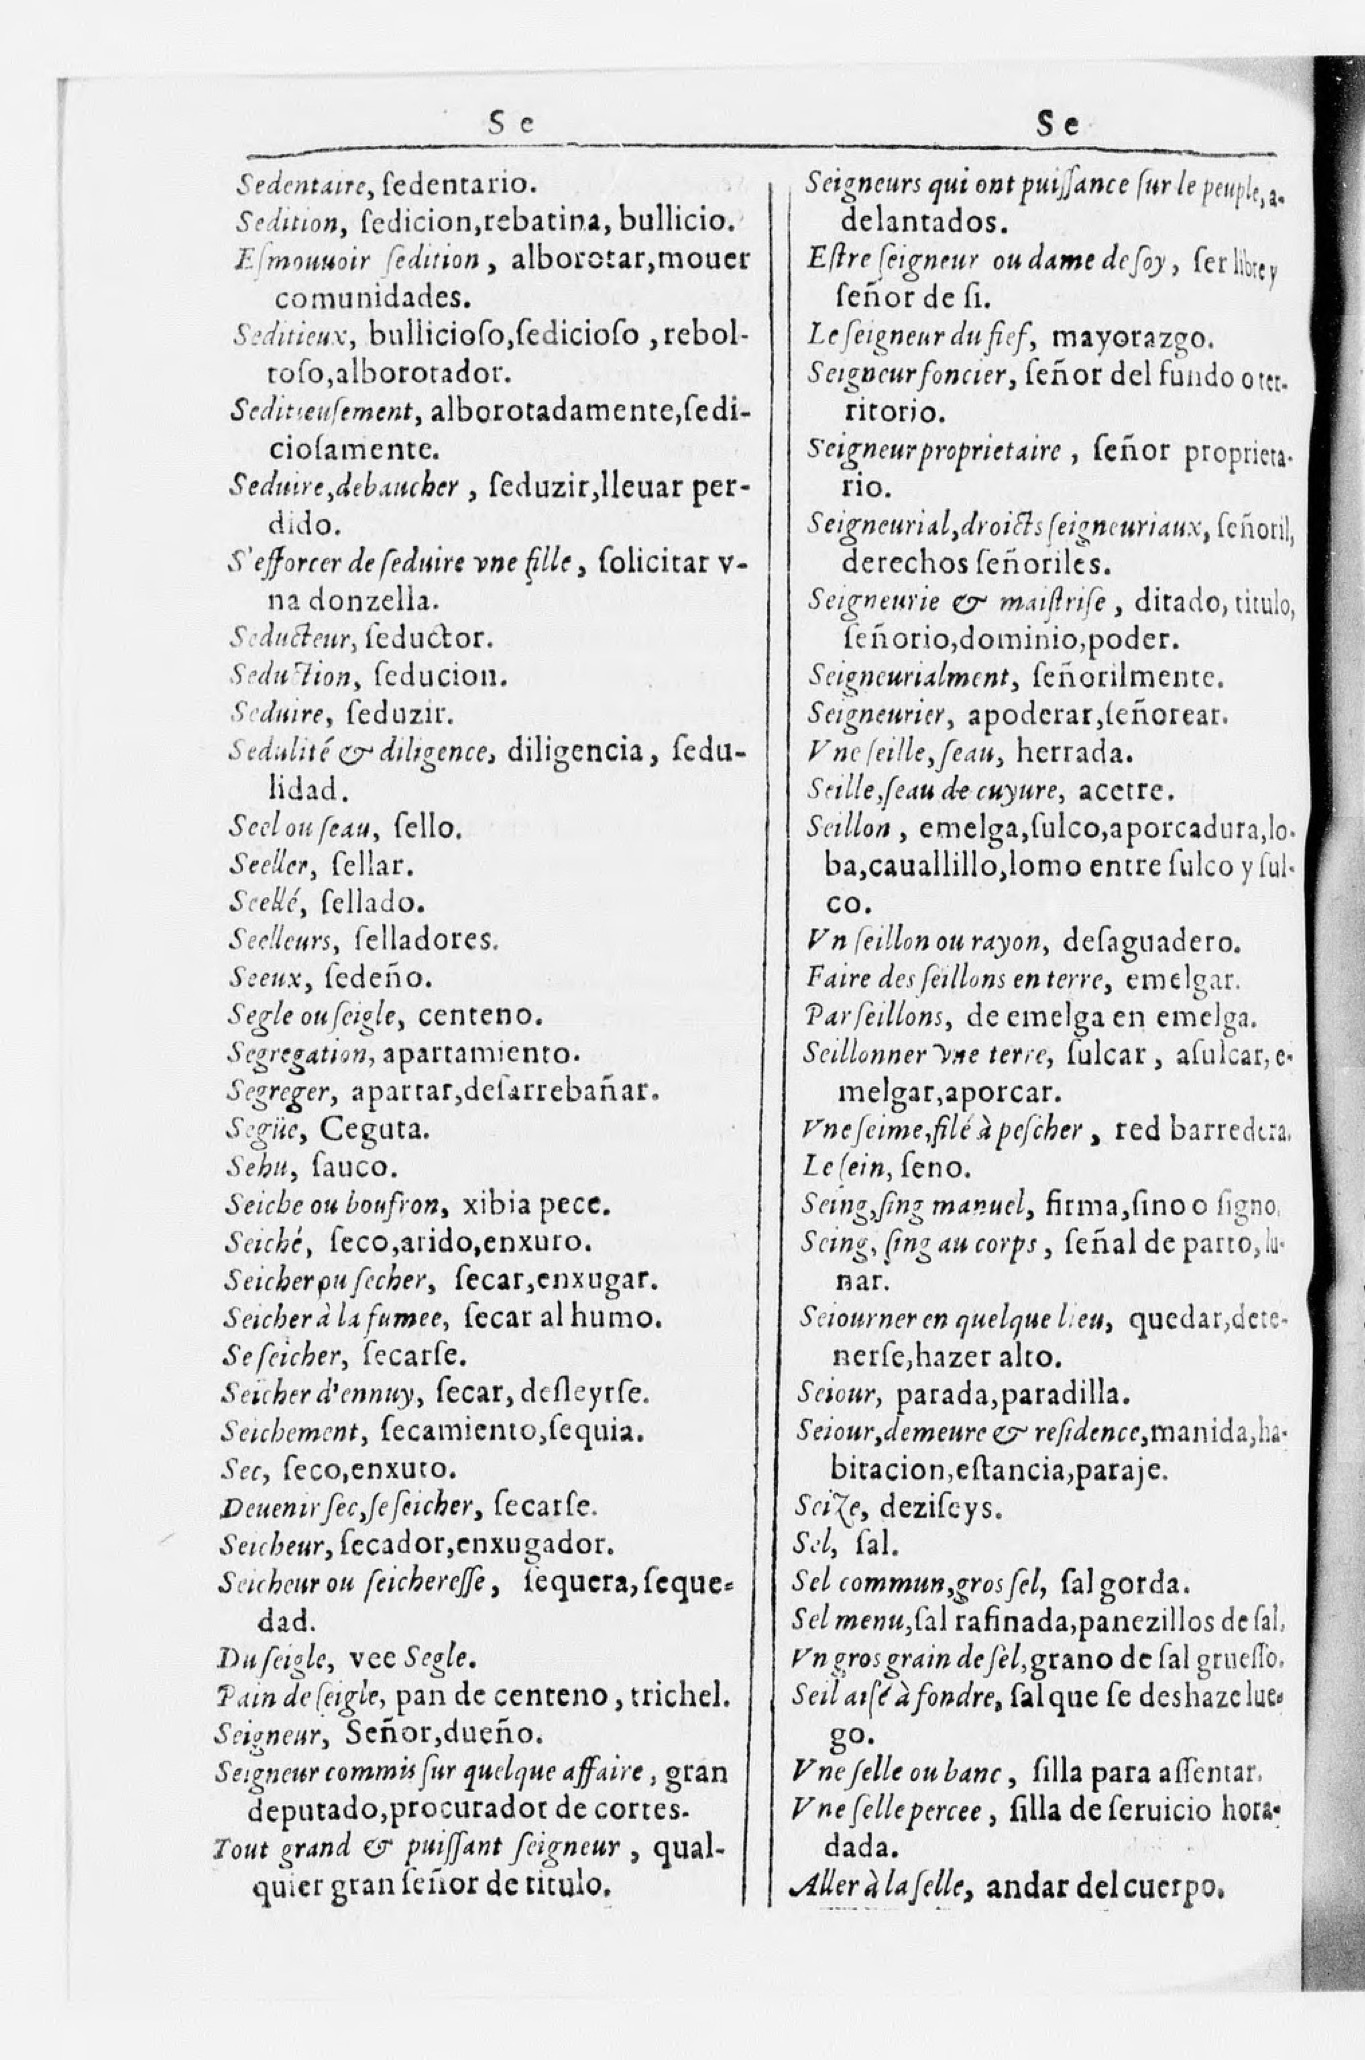 S e
Sedentaire, ſedentario.
Sedition, ſedicion,rebatina, bullicio.
Eſmouuoir ſedition, alborotar,mouer
comunidades.
Seditieux, bullicioſo,ſedicioſo, rebol-
toſo,alborotador.
Seditieuſement, alborotadamente,ſedi-
cioſamente.
Seduire,debaucher, ſeduzir,lleuar per-
dido.
S'efforcer de ſeduire vne fille, ſolicitar v-
na donzella.
Seducteur, ſeductor.
Seduction, ſeducion.
Seduire, ſeduzir.
Sedulité & diligence, diligencia, ſedu-
lidad.
Seel ou ſeau, ſello.
Seeller, ſellar.
Seellé, ſellado.
Seelleurs, ſelladores.
Seeux, ſedeño.
Segle ou ſeigle, centeno.
Segregation, apartamiento.
Segreger, apartar,deſarrebañar.
Següe, Ceguta.
Sehu, ſauco.
Seiche ou bouſron, xibia pece.
Seiché, ſeco,arido,enxuto.
Seicher ou ſecher, ſecar,enxugar.
Seicher à la fumee, ſecar al humo.
Se ſeicher, ſecarſe.
Seicher d'ennuy, ſecar, deſleyrſe.
Seichement, ſecamiento,ſequia.
Sec, ſeco,enxuto.
Deuenir ſec,ſe ſeicher, ſecarſe.
Seicheur, ſecador,enxugador.
Seicheur ou ſeichereſſe, ſequera, ſeque-
dad.
Du ſeigle, vee Segle.
Pain de ſeigle, pan de centeno, trichel.
Seigneur, Señor,dueño.
Seigneur commis ſur quelque affaire, gran
deputado,procurador de cortes.
Tout grand & puiſſant ſeigneur, qual-
quier gran ſeñor de titulo.
S e
Seigneurs qui ont puiſſance ſur le peuple, a-
delantados.
Eſtre ſeigneur ou dame de ſoy, ſer libre y
ſeñor de ſi.
Le ſeigneur du fief, mayorazgo.
Seigneur foncier, ſeñor del fundo o ter-
ritorio.
Seigneur proprietaire, ſeñor proprieta-
rio.
Seigneurial,droicts ſeigneuriaux, ſeñoril,
derechos ſeñoriles.
Seigneurie & maiſtriſe, ditado, titulo,
ſeñorio,dominio,poder.
Seigneurialment, ſeñorilmente.
Seigneurier, apoderar,ſeñorear.
Vne ſeille, ſeau, herrada.
Seille,ſeau de cuyure, acetre.
Seillon, emelga,ſulco,aporcadura,lo-
ba,cauallillo,lomo entre ſulco y ſul-
co.
Vn ſeillon ou rayon, deſaguadero.
Faire des ſeillons en terre, emelgar.
Par ſeillons, de emelga en emelga.
Seillonner vne terre, ſulcar, aſulcar, e-
melgar,aporcar.
Vne ſeime,filé à peſcher, red barredera.
Le ſein, ſeno.
Seing,ſing manuel, firma,ſino o ſigno.
Seing, ſing au corps, ſeñal de parto, lu-
nar.
Seiourner en quelque lieu, quedar,dete-
nerſe,hazer alto.
Seiour, parada,paradilla.
Seiour,demeure & reſidence,manida,ha-
bitacion,eſtancia,paraje.
Seize, deziſeys.
Sel, ſal.
Sel commun,gros ſel, ſal gorda.
Sel menu,ſal rafinada,panezillos de ſal.
Vn gros grain de ſel,grano de ſal grueſſo.
Seil aiſé à fondre, ſal que ſe deshaze lue-
go.
Vne ſelle ou banc, ſilla para aſſentar.
Vne ſelle percee, ſilla de ſeruicio hora-
dada.
Aller à la ſelle, andar del cuerpo.